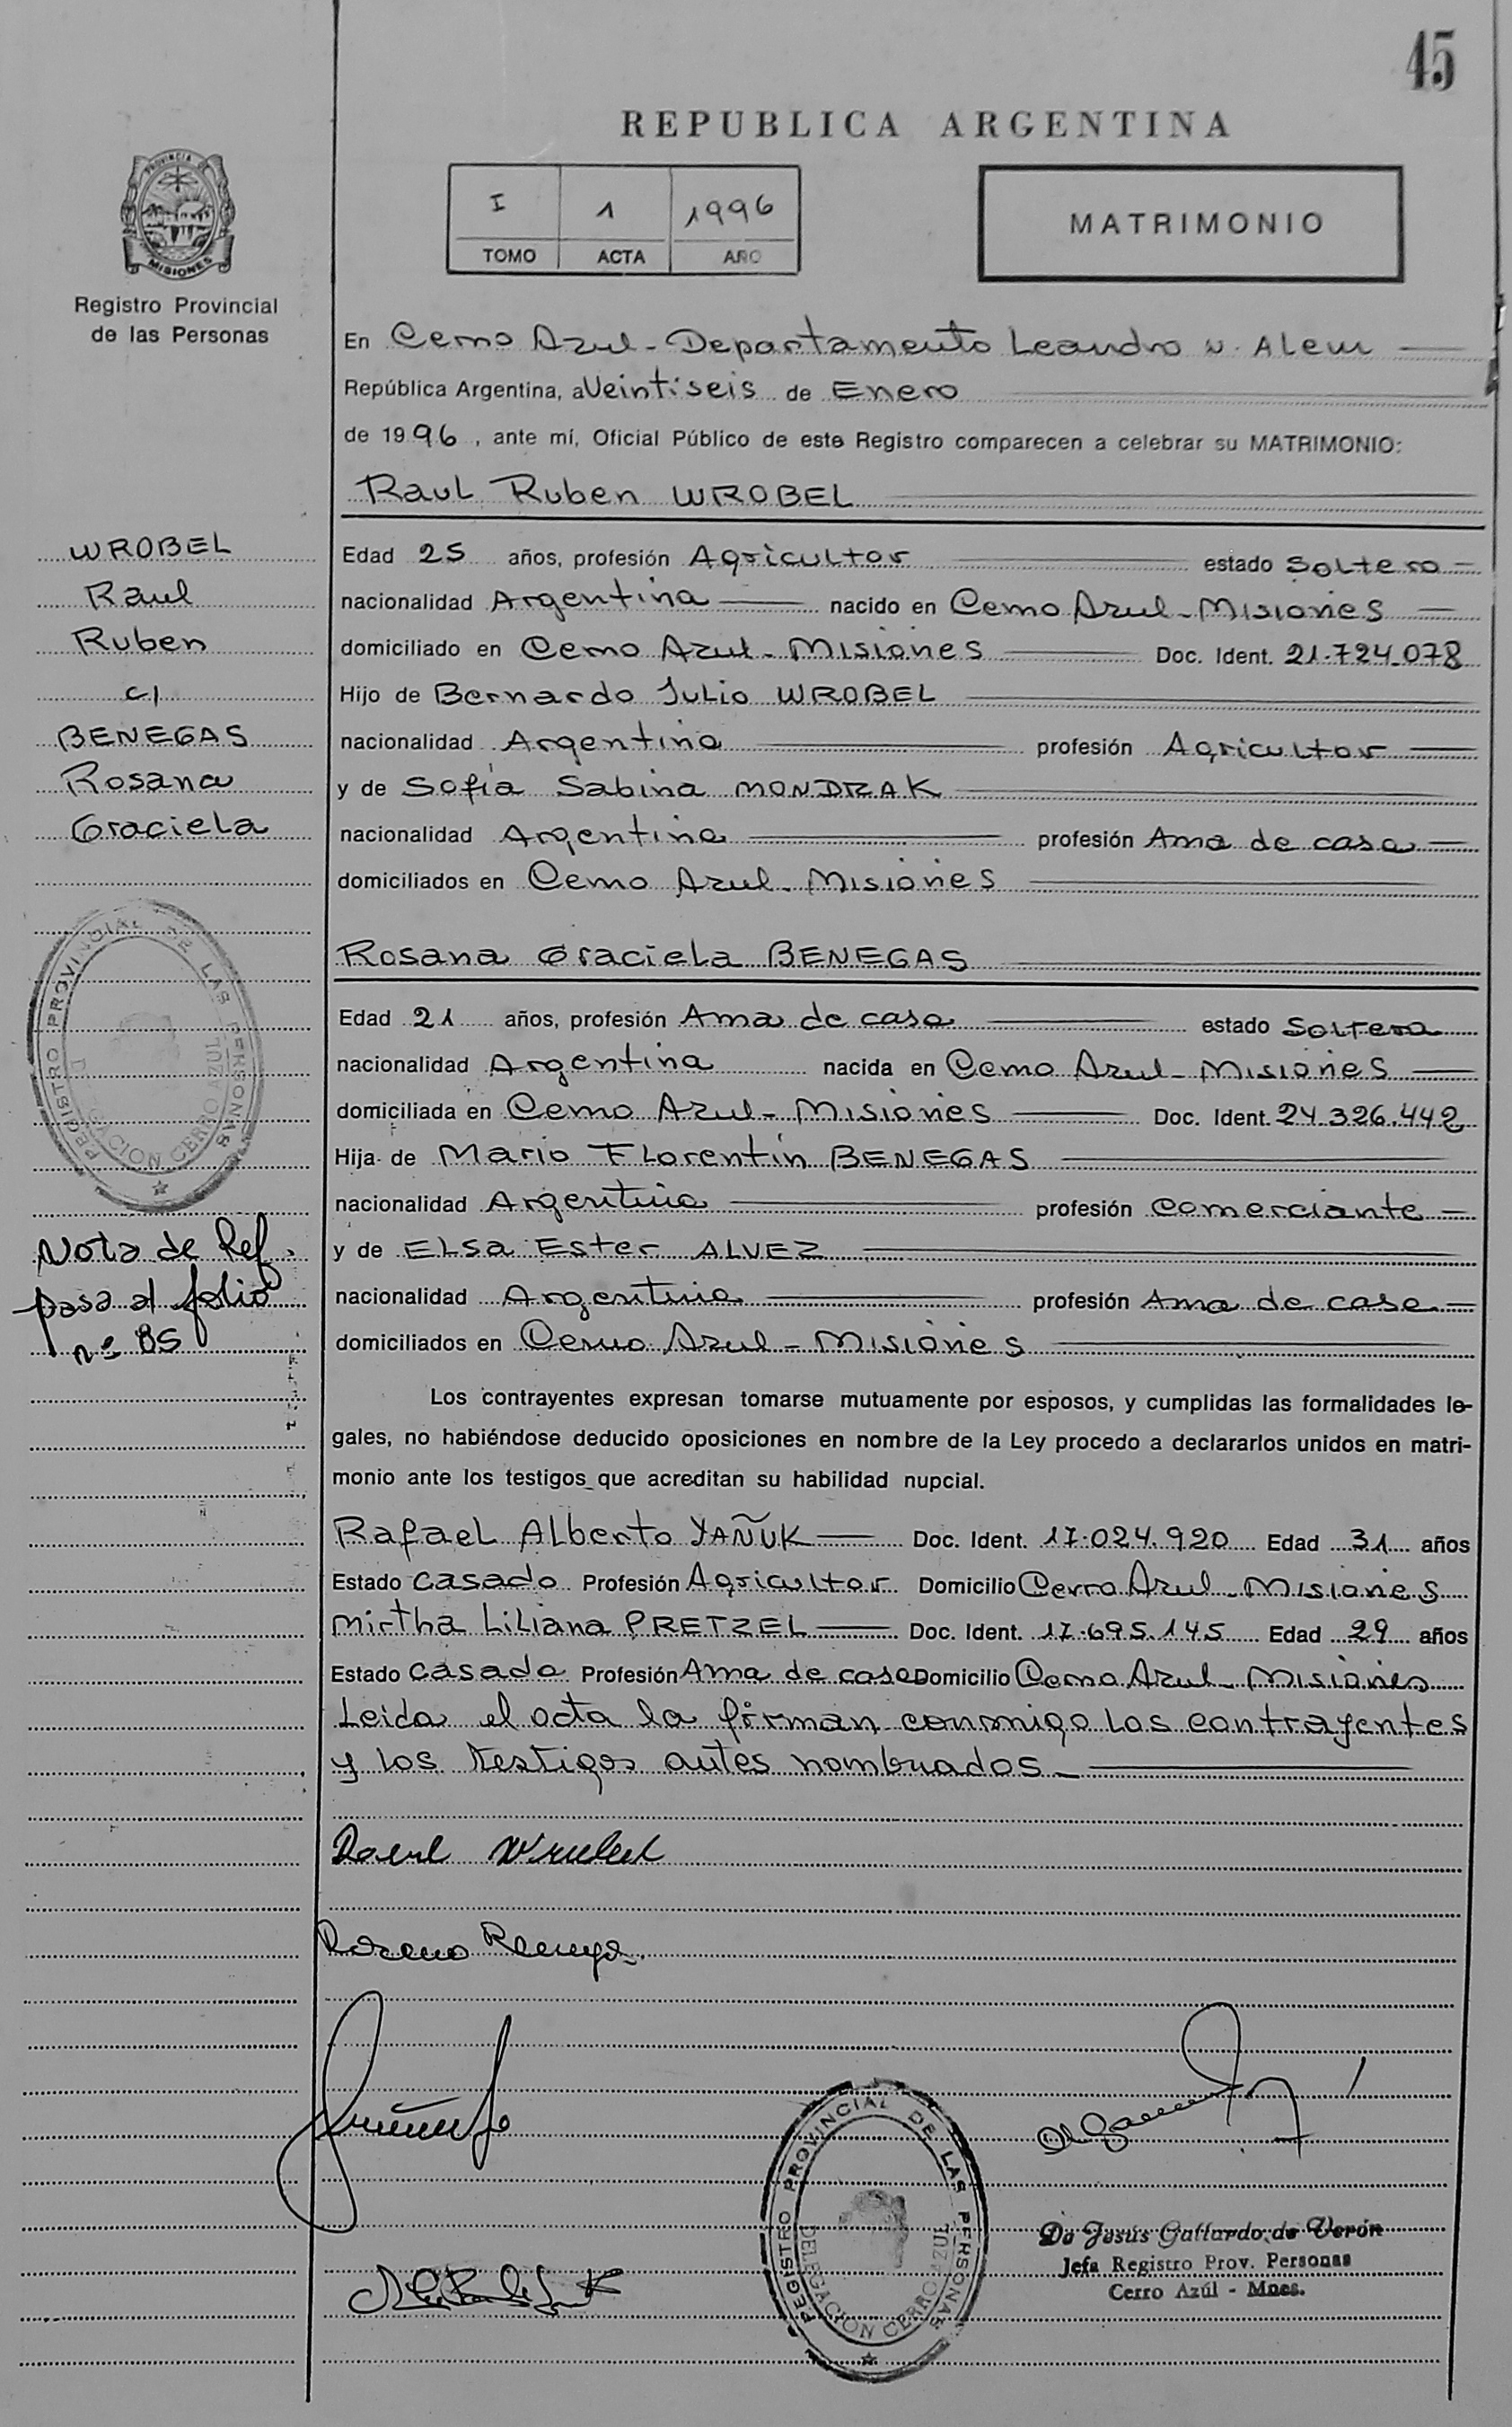 45
REPUBLICA ARGENTINA
I 1 1996
TOMO ACTA AÑO
MATRIMONIO
PROVINCIA DE
MISIONES
Registro Provincial
de las Personas
En Cerro Azul - Departamento Leandro N. Alem
República Argentina, a Veintiseis de Enero
de 1996, ante mí, Oficial Público de este Registro comparecen a celebrar su MATRIMONIO:
Raul Ruben WROBEL
Edad 25 años, profesión Agricultor estado Soltero
nacionalidad Argentina nacido en Cerro Azul - Misiones
domiciliado en Cerro Azul - Misiones Doc. Ident. 21.724.078
Hijo de Bernardo Julio WROBEL
nacionalidad Argentina profesión Agricultor
y de Sofía Sabina MONDRAK
nacionalidad Argentina profesión Ama de casa
domiciliados en Cerro Azul - Misiones
Rosana Graciela BENEGAS
Edad 21 años, profesión Ama de casa estado Soltera
nacionalidad Argentina nacida en Cerro Azul - Misiones
domiciliada en Cerro Azul - Misiones Doc. Ident. 24.326.442
Hija de Mario Florentin BENEGAS
nacionalidad Argentina profesión Comerciante
y de ELsa Ester ALVEZ
nacionalidad Argentina profesión Ama de casa
domiciliados en Cerro Azul - Misiones
Los contrayentes expresan tomarse mutuamente por esposos, y cumplidas las formalidades le-
gales, no habiéndose deducido oposiciones en nombre de la Ley procedo a declararlos unidos en matri-
monio ante los testigos que acreditan su habilidad nupcial.
Rafael Alberto YAÑUK Doc. Ident. 17.024.920 Edad 31 años
Estado Casado Profesión Agricultor Domicilio Cerro Azul - Misiones
Mirtha Liliana PRETZEL Doc. Ident. 17.695.145 Edad 29 años
Estado Casada Profesión Ama de casa Domicilio Cerro Azul - Misiones
Leida el acta la firman conmigo los contrayentes
y los testigos antes nombrados
WROBEL
Raul
Ruben
c/
BENEGAS
Rosana
Graciela
REGISTRO PROVINCIAL DE LAS PERSONAS
DELEGACION CERRO AZUL
Nota de Ref.
pasa al folio
nº 85
Raul Wrobel
REGISTRO PROVINCIAL DE LAS PERSONAS
DELEGACION CERRO AZUL
Da Jesús Gallardo de Verón
Jefa Registro Prov. Personas
Cerro Azúl - Mnes.